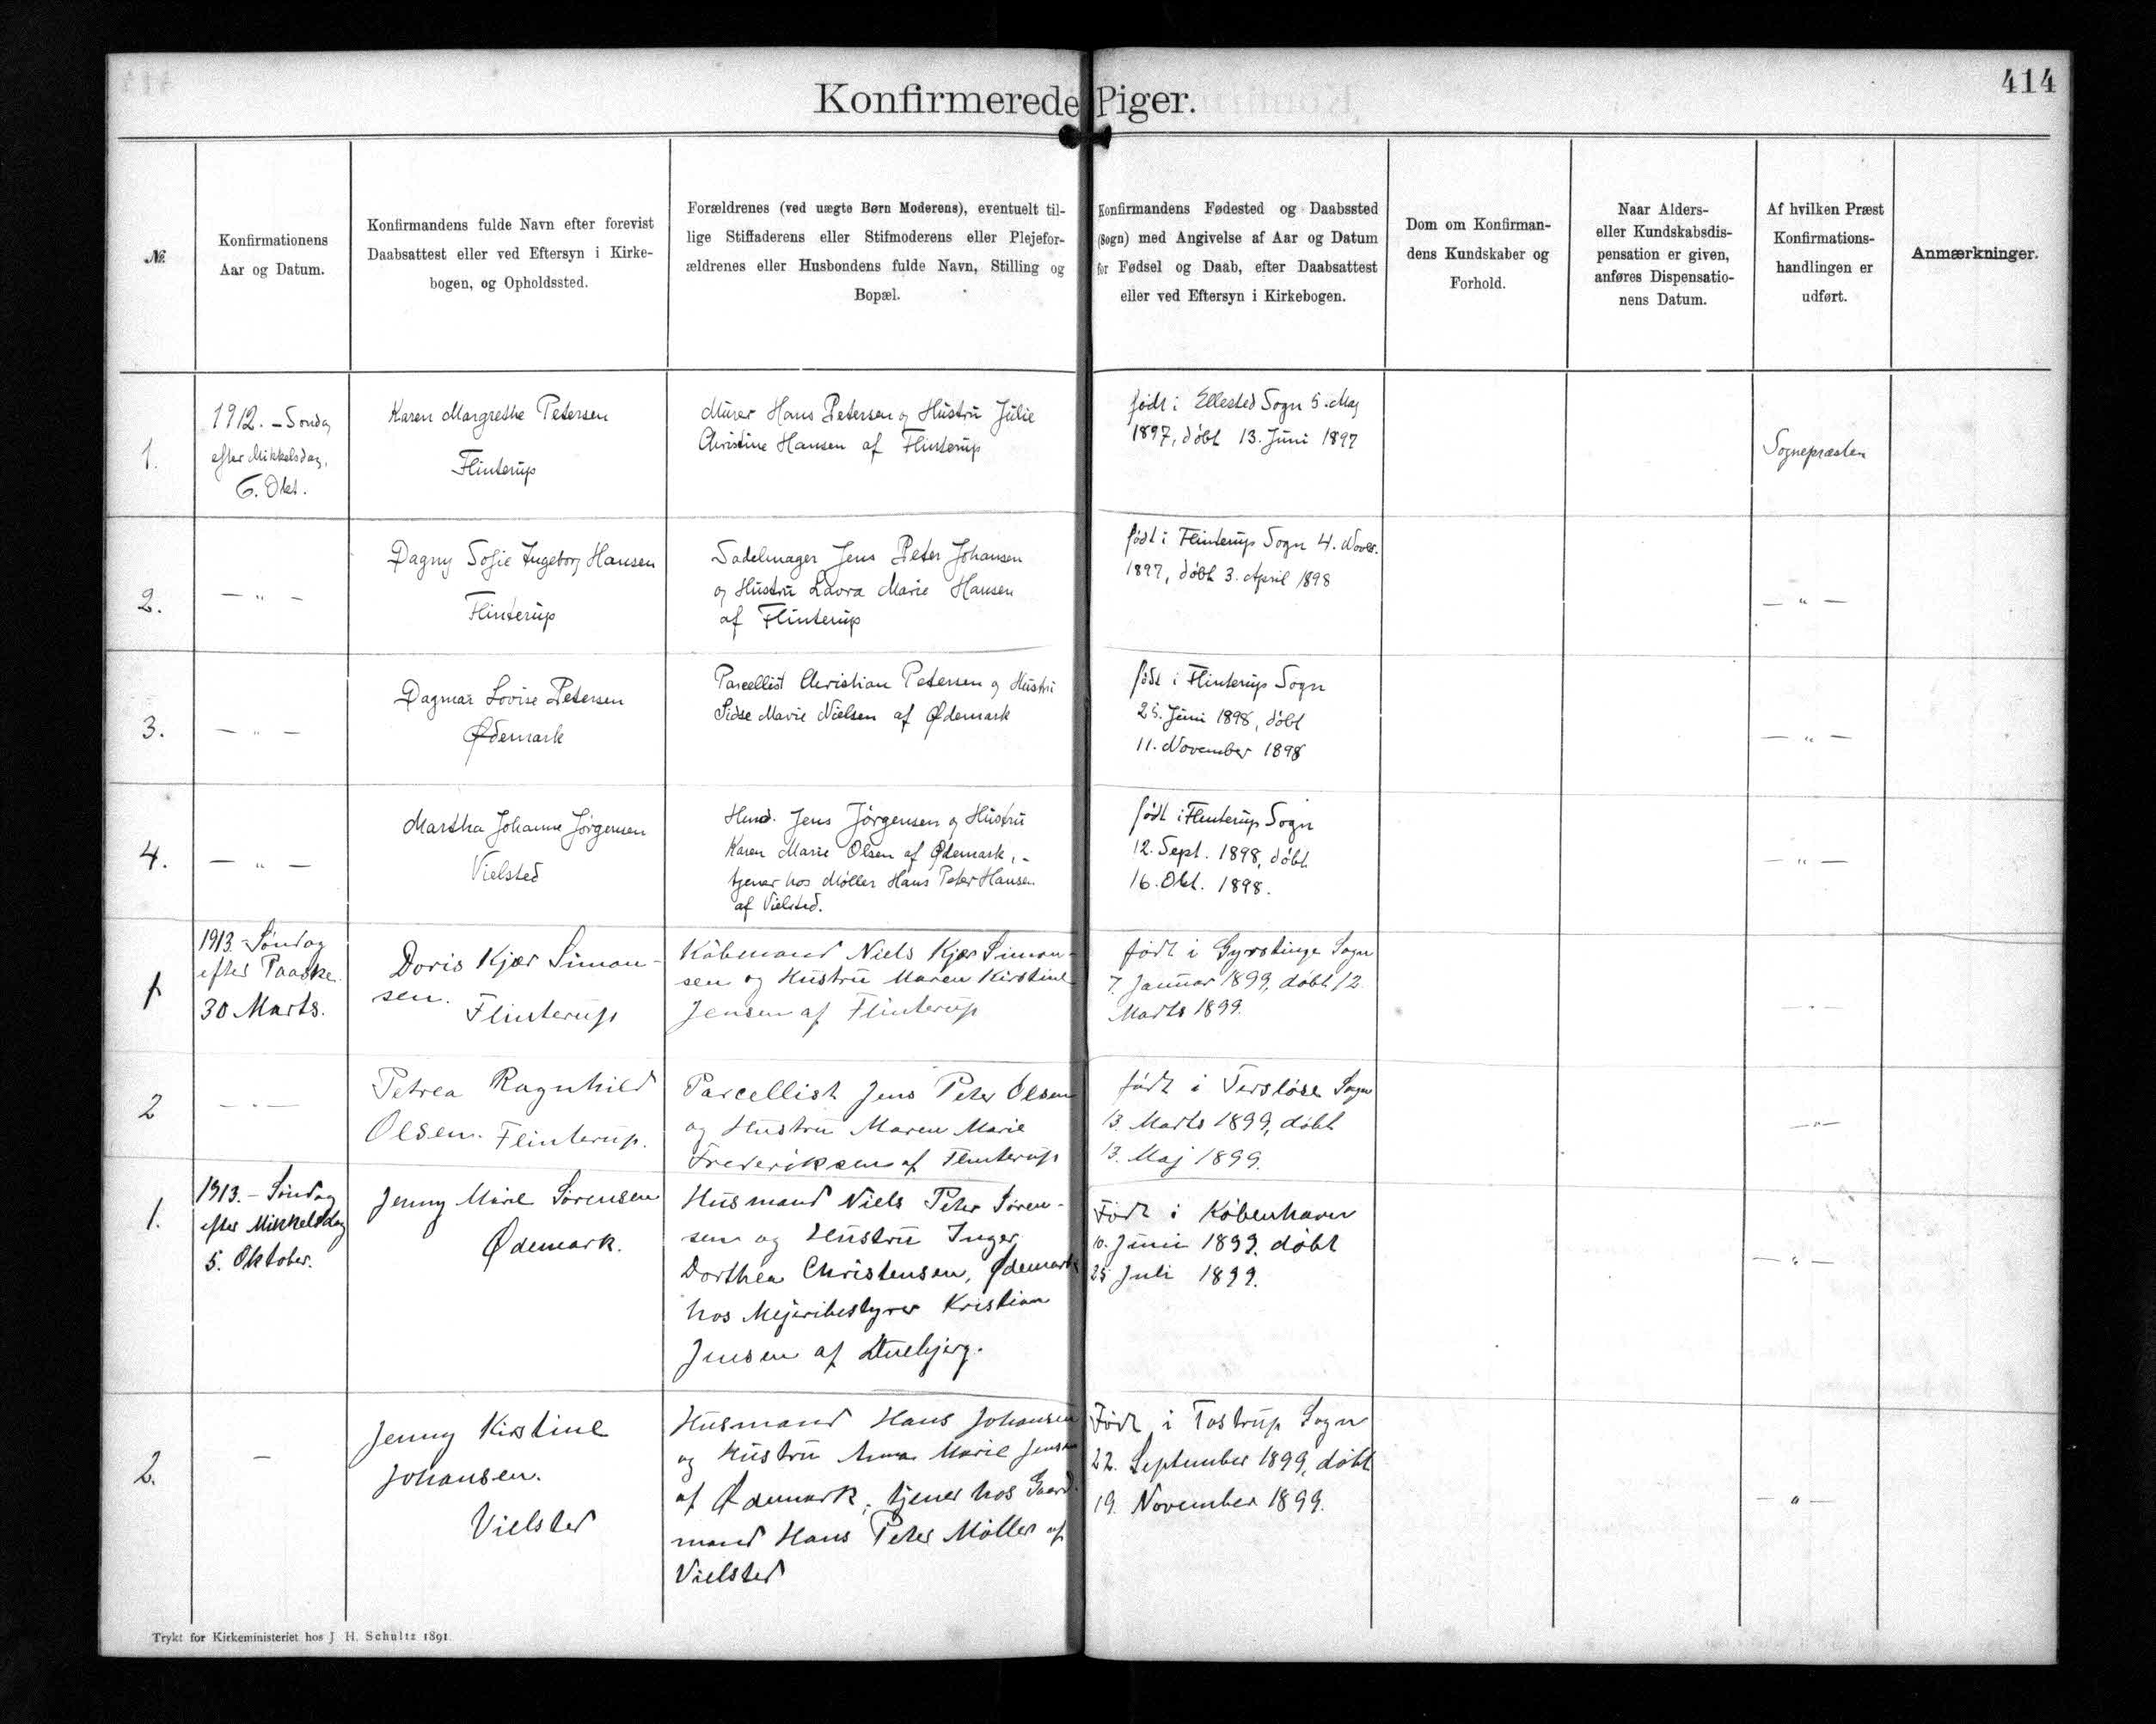 414
Konfirmerede Piger.
№
Konfirmationens
Aar og Datum.
Konfirmandens fulde Navn efter forevist
Daabsattest eller ved Eftersyn i Kirke-
bogen, og Opholdssted.
Forældrenes (ved uægte Børn Moderens), eventuelt til-
lige Stiffaderens eller Stifmoderens eller Plejefor-
ældrenes eller Husbondens fulde Navn, Stilling og
Bopæl.
Konfirmandens Fødested og Daabssted
(Sogn) med Angivelse af Aar og Datum
for Fødsel og Daab, efter Daabsattest
eller ved Eftersyn i Kirkebogen.
Dom om Konfirman-
dens Kundskaber og
Forhold.
Naar Alders-
eller Kundskabsdis-
pensation er given,
anføres Dispensatio-
nens Datum.
Af hvilken Præst
Konfirmations-
handlingen er
udført.
Anmærkninger.
1.
1912. – Søndag
efter Mikkelsdag,
6. Okt.
Karen Margrethe Petersen
Flinterup
Murer Hans Petersen og Hustru Julie
Christine Hansen af Flinterup
født i Ellested Sogn 5. Maj
1897, døbt 13. Juni 1897
Sognepræsten
2.
— " —
Dagny Sofie Ingeborg Hansen
Flinterup
Sadelmager Jens Peter Johansen
og Hustru Laura Marie Hansen
af Flinterup
født i Flinterup Sogn 4. Novbr.
1897, døbt 3. April 1898
— " —
3.
— " —
Dagmar Lovise Petersen
Ødemark
Parcellist Christian Petersen og Hustru
Sidse Marie Nielsen af Ødemark
født i Flinterup Sogn
25. Juni 1898, døbt
11. November 1898
— " —
4.
— " —
Martha Johanne Jørgensen
Vielsted
Husd. Jens Jørgensen og Hustru
Karen Marie Olsen af Ødemark, -
tjener hos Møller Hans Peter Hansen
af Vielsted.
født i Flinterup Sogn
12. Sept. 1898, døbt
16. Okt. 1898.
— " —
1
1913. - Søndag
efter Paaske.
30 Marts.
Doris Kjær Simon-
sen.
Flinterup
Købmand Niels Kjær Simon-
sen og Hustru Maren Kirstine
Jensen af Flinterup
født i Gyrstinge Sogn
7. Januar 1899, døbt 12.
Marts 1899.
— " —
2
— " —
Petrea Ragnhild
Olsen. Flinterup.
Parcellist Jens Peter Olsen
og Hustru Maren Marie
Frederiksen af Flinterup
født i Tersløse Sogn
13. Marts 1899, døbt
13. Maj 1899.
— " —
1.
1913. – Søndag
efter Mikkelsdag
5. Oktober.
Jenny Marie Sørensen
Ødemark.
Husmand Niels Peter Søren-
sen og Hustru Inger
Dorthea Christensen, Ødemark
hos Mejeribestyrer Kristian
Jensen af
Født i København
10. Juni 1899. døbt
25 Juli 1899.
— " —
2.
—
Jenny Kirstine
Johansen.
Vielsted
Husmand Hans Johansen
og Hustru Anna Marie Jensen
af Ødemark, tjener hos Gaard-
mand Hans Peter Møller af
Vielsted
Født i Tostrup Sogn
22. September 1899, døbt
19. November 1899.
— " —
Trykt for Kirkeministeriet hos J. H. Schultz 1891.